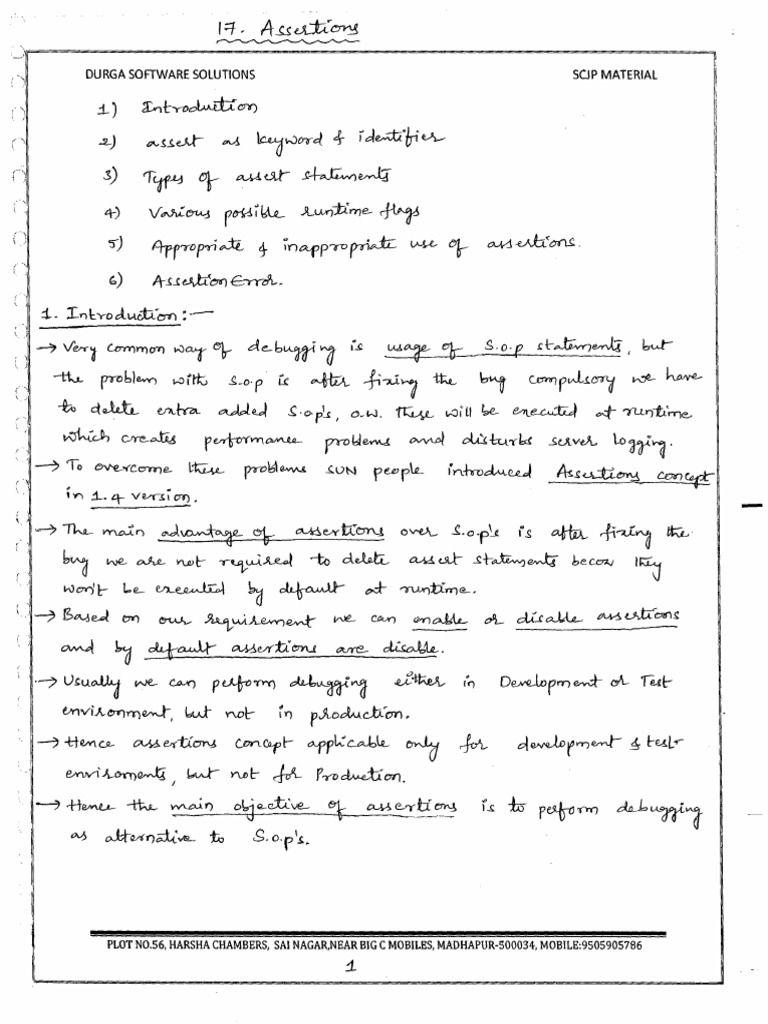 17. Assertions
DURGA SOFTWARE SOLUTIONS SCJP MATERIAL
1) Introduction
2) assert as keyword & identifier
3) Types of assert statements
4) Various possible runtime flags
5) Appropriate & inappropriate use of assertions.
6) AssertionError.
1. Introduction:—
→ Very common way of debugging is usage of S.o.p statements, but
the problem with S.o.p is after fixing the bug compulsory we have
to delete extra added S.op's, o.w. these will be executed at runtime
which creates performance problems and disturbs server logging.
→ To overcome these problems SUN people introduced Assertions concept
in 1.4 version.
→ The main advantage of assertions over S.o.p's is after fixing the
bug we are not required to delete assert statements becoz they
won't be executed by default at runtime.
→ Based on our requirement we can enable or disable assertions
and by default assertions are disable.
→ Usually we can perform debugging either in Development or Test
environment, but not in production.
→ Hence assertions concept applicable only for development & test
enviroments, but not for Production.
→ Hence the main objective of assertions is to perform debugging
as alternative to S.o.p's.
PLOT NO.56, HARSHA CHAMBERS, SAI NAGAR,NEAR BIG C MOBILES, MADHAPUR-500034, MOBILE:9505905786
1